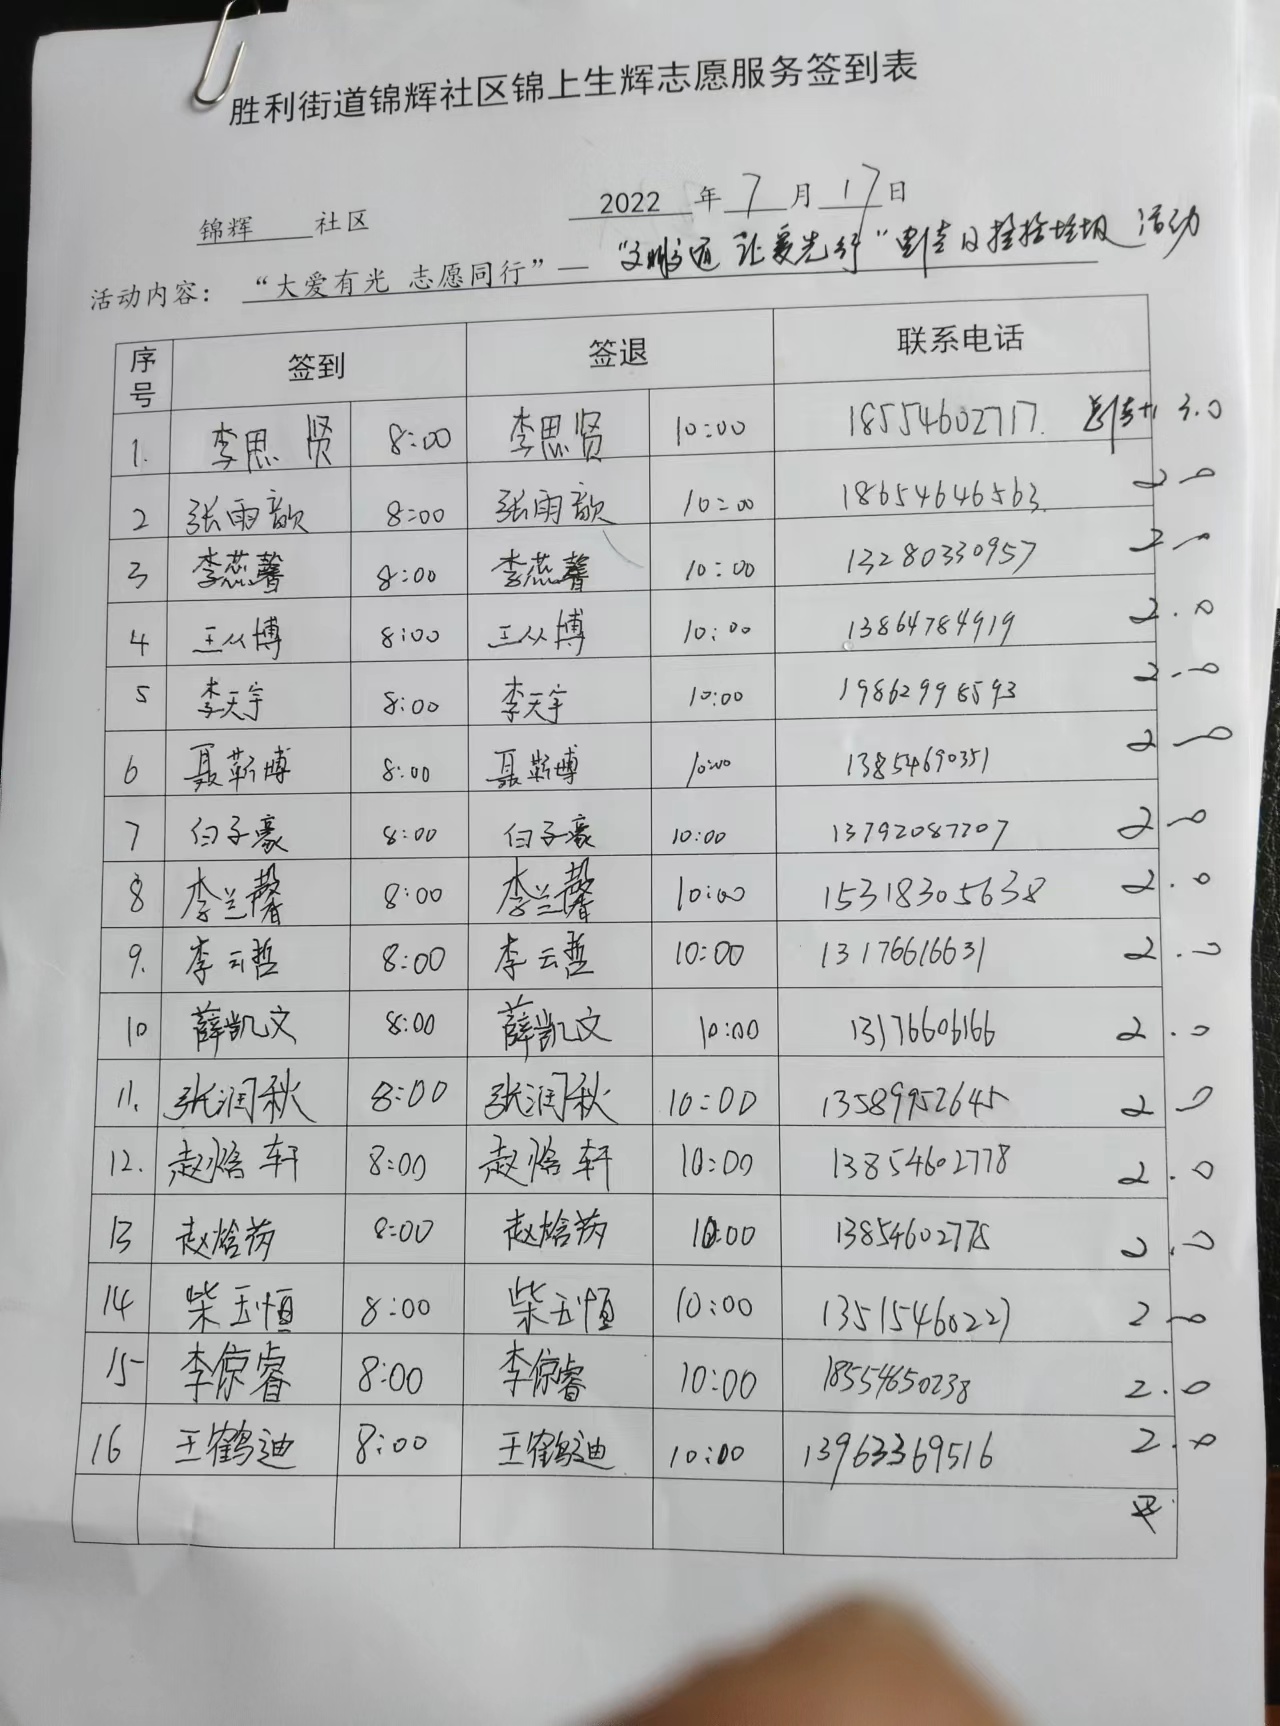 胜利街道锦辉社区锦上生辉志愿服务签到表
锦辉 社区 2022 年 7 月 17 日
活动内容： “大爱有光 志愿同行”— “文明交通 让爱先行” 捡拾垃圾 活动
序号 签到 签退 联系电话
1. 李思贤 8:00 李思贤 10:00 18554602717. 3.0
2 张雨歆 8:00 张雨歆 10:00 18654646563. 2.0
3 李燕馨 8:00 李燕馨 10:00 13280330957 2.0
4 王从博 8:00 王从博 10:00 13864784919 2.0
5 李天宇 8:00 李天宇 10:00 19862998593 2.0
6 聂靳博 8:00 聂靳博 10:00 13854690351 2.0
7 白子豪 8:00 白子豪 10:00 13792087207 2.0
8 李兰馨 8:00 李兰馨 10:00 15318305638 2.0
9. 李云哲 8:00 李云哲 10:00 13176616631 2.0
10 薛凯文 8:00 薛凯文 10:00 13176606166 2.0
11. 张润秋 8:00 张润秋 10:00 13589952645 2.0
12. 赵焓轩 8:00 赵焓轩 10:00 13854602778 2.0
13 赵焓 8:00 赵焓 10:00 13854602778 2.0
14 柴玉恒 8:00 柴玉恒 10:00 13515460227 2.0
15 李倞睿 8:00 李倞睿 10:00 18554650238 2.0
16 王鹤迪 8:00 王鹤迪 10:00 13963369516 2.0